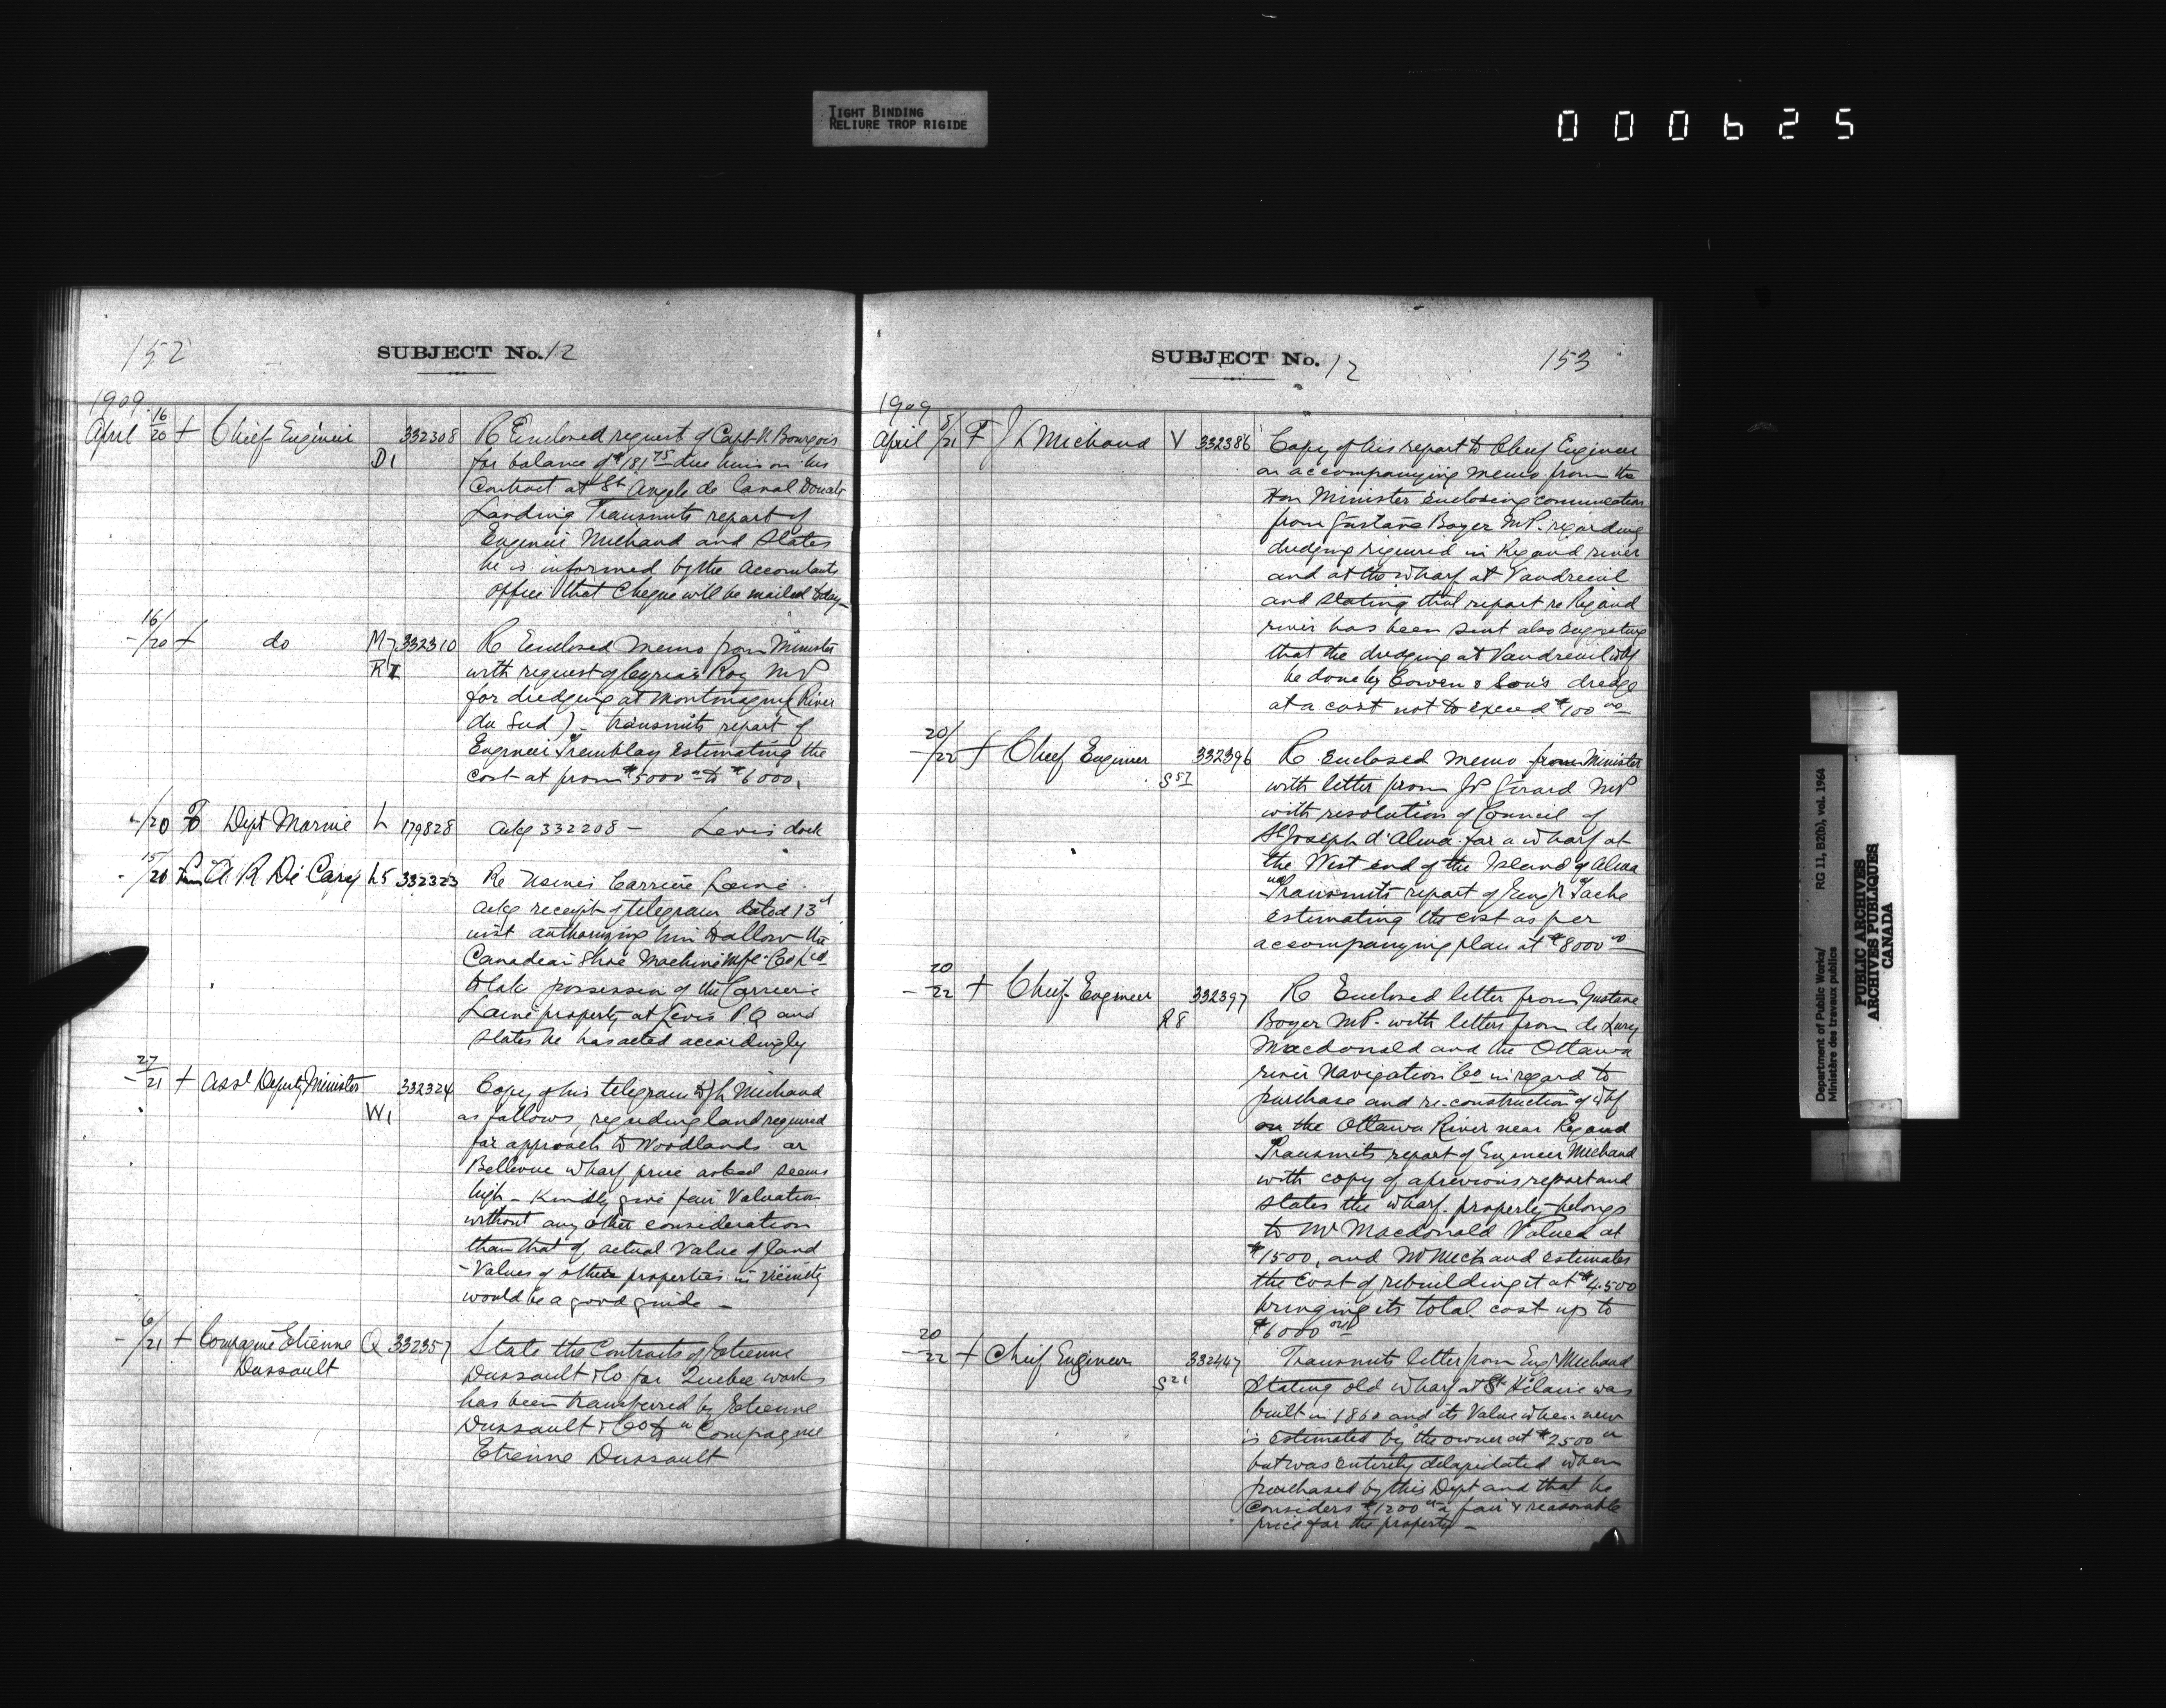 TIGHT BINDING
RELIURE TROP RIGIDE
000625
152
SUBJECT No. 12
1909
April 16/20 + Chief Engineer D1 332308 R Enclosed request of Capt N Bourgeois
for balance of $181 75 due him on his
Contract at St Angele de Laval Doucets
Landing Transmits report of
Engineer Michaud and states
he is informed by the Accountants
office that Cheque will be mailed today —
- 16/20 + do M7 R1 332310 R Enclosed memo from Minister
with request of Cyrias Roy MP
for dredging at Montmagny (River
du Sud) - transmits report of
Engineer Tremblay estimating the
cost at from $5000 00 to $6000,
/20 Dept Marine L 179828 Ackg 332208 - Levis dock
- 15/20 A R De Cary L5 332323 Re Usines Carriere Laine.
Ackg receipt of telegram dated 13th
inst authorizing him to allow the
Canadian Shoe Machine Mfg Co Ltd
to take possession of the Carriere
Laine property at Levis P Q and
states he has acted accordingly
- 27/21 + Asst Deputy Minister W1 332324 Copy of his telegram to J L Michaud
as follows, regarding land required
for approach to Woodlands or
Bellevue wharf price asked seems
high - Kindly give fair Valuation
without any other consideration
than that of actual Value of land
- Values of other properties in vicinity
would be a good guide -
- 6/21 + Compagnie Etienne Q 332357 State the Contracts of Etienne
Dussault
Dussault & Co for Quebec works
has been transferred by Etienne
Dussault & Co to "Compagnie
Etienne Dussault
SUBJECT No. 12
153
1909
April 5/21 F J L Michaud V 332386 Copy of his report to Chief Engineer
on accompanying memo from the
Hon Minister enclosing communication
from Gustave Boyer MP. regarding
dredging required in Rigaud river
and at the wharf at Vaudreuil
and stating that report re Rigaud
river has been sent also suggesting
that the dredging at Vaudreuil whf
be done by Cowen & Son's dredge
at a cost not to exceed $100 00
- 20/22 + Chief Engineer S57 332396 R Enclosed memo from Minister
with letter from JP Girard MP
with resolution of Council of
St Joseph d'Alma for a wharf at
the West end of the Island of Alma
Transmits report of Engr Tache
estimating the cost as per
accompanying plan at $8000 00
- 20/22 + Chief Engineer R8 332397 R Enclosed letter from Gustave
Boyer MP. with letters from de Lery
Macdonald and the Ottawa
river Navigation Co in regard to
purchase and re-construction of whf
on the Ottawa River near Rigaud
Transmits report of Engineer Michaud
with copy of a previous report and
states the wharf property belongs
to Mr Macdonald Valued at
$1500, and Mr Michaud estimates
the Cost of rebuilding it at $4.500
bringing its total cost up to
$6000
- 20/22 + Chief Engineer S21 332447 Transmits letter from Engr Michaud
stating old wharf at St Hilaire was
built in 1860 and its Value when new
is estimated by the owner at $2500 00
but was entirely delapidated when
purchased by this Dept and that he
considers $1200 00 a fair & reasonable
price for the property -
Department of Public Works/ RG 11, B2(b), vol. 1964
Ministère des travaux publics
PUBLIC ARCHIVES
ARCHIVES PUBLIQUES
CANADA